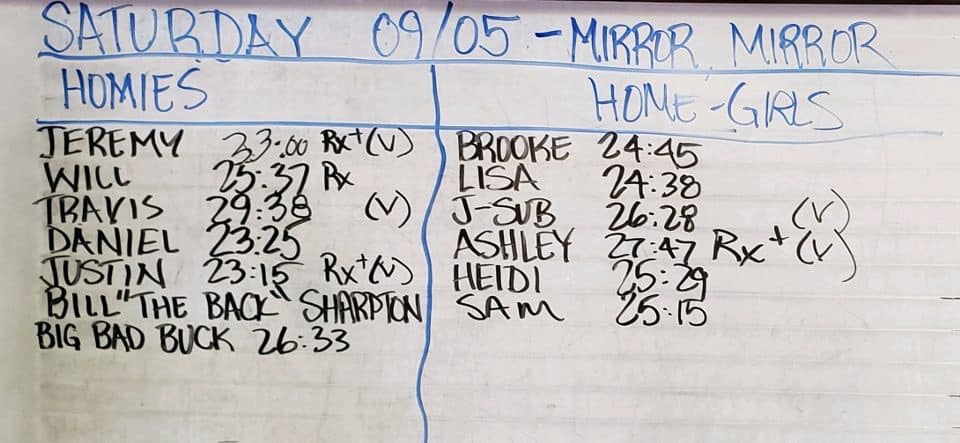 SATURDAY 09/05 - MIRROR MIRROR
HOMIES
JEREMY 23:00 Rx+(V)
WILL 25:37 Rx
TRAVIS 29:38 (V)
DANIEL 23:25
JUSTIN 23:15 Rx+(V)
BILL "THE BACK" SHARPTON
BIG BAD BUCK 26:33
HOME-GIRLS
BROOKE 24:45
LISA 24:38
J-SUB 26:28 (V)
ASHLEY 27:47 Rx+(V)
HEIDI 25:29
SAM 25:15